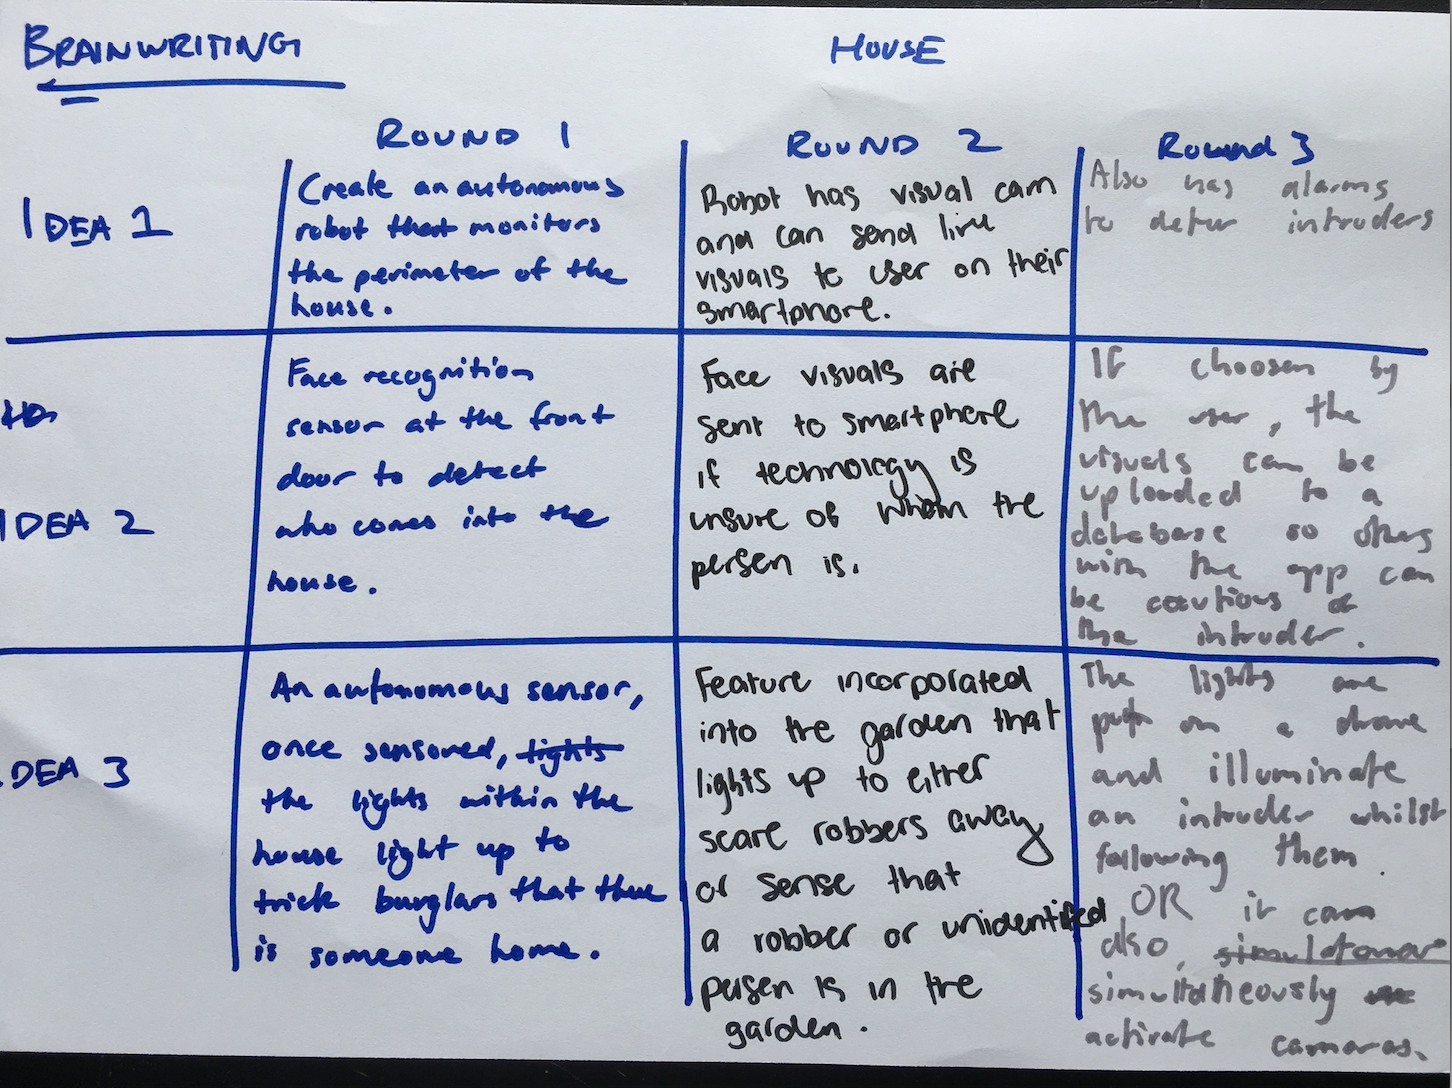 BRAINWRITING
HOUSE
ROUND 1
ROUND 2
Round 3
IDEA 1
Create an autonomous
robot that monitors
the perimeter of the
house.
Robot has visual cam
and can send live
visuals to user on their
smartphone.
Also has alarms
to deter intruders
IDEA 2
Face recognition
sensor at the front
door to detect
who comes into the
house.
Face visuals are
sent to smartphone
if technology is
unsure of whom the
person is.
If choosen by
the user, the
visuals can be
uploaded to a
database so others
with the app can
be cautious of
the intruder.
IDEA 3
An autonomous sensor,
once sensored, lights
the lights within the
house light up to
trick burglars that there
is someone home.
Feature incorporated
into the garden that
lights up to either
scare robbers away
or sense that
a robber or unidentified
person is in the
garden.
The lights are
put on a drone
and illuminate
an intruder whilst
following them.
OR it can
also,
simultaneously
activate cameras.